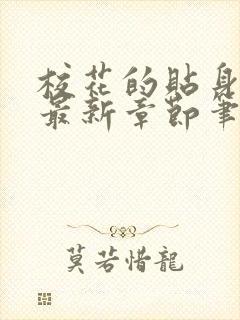 校花的貼身
最新章節筆
莫若惜龍